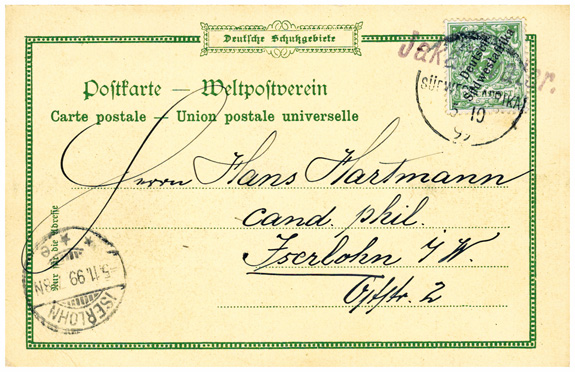 Deutsche Schutzgebiete
Deutsch-
Südwestafrika
SÜDWESTAFRIKA
10
Postkarte — Weltpostverein
Carte postale — Union postale universelle
Herrn Hans Hartmann
cand. phil.
Iserlohn i/W.
Nur für die Adresse
5.11.99
ISERLOHN